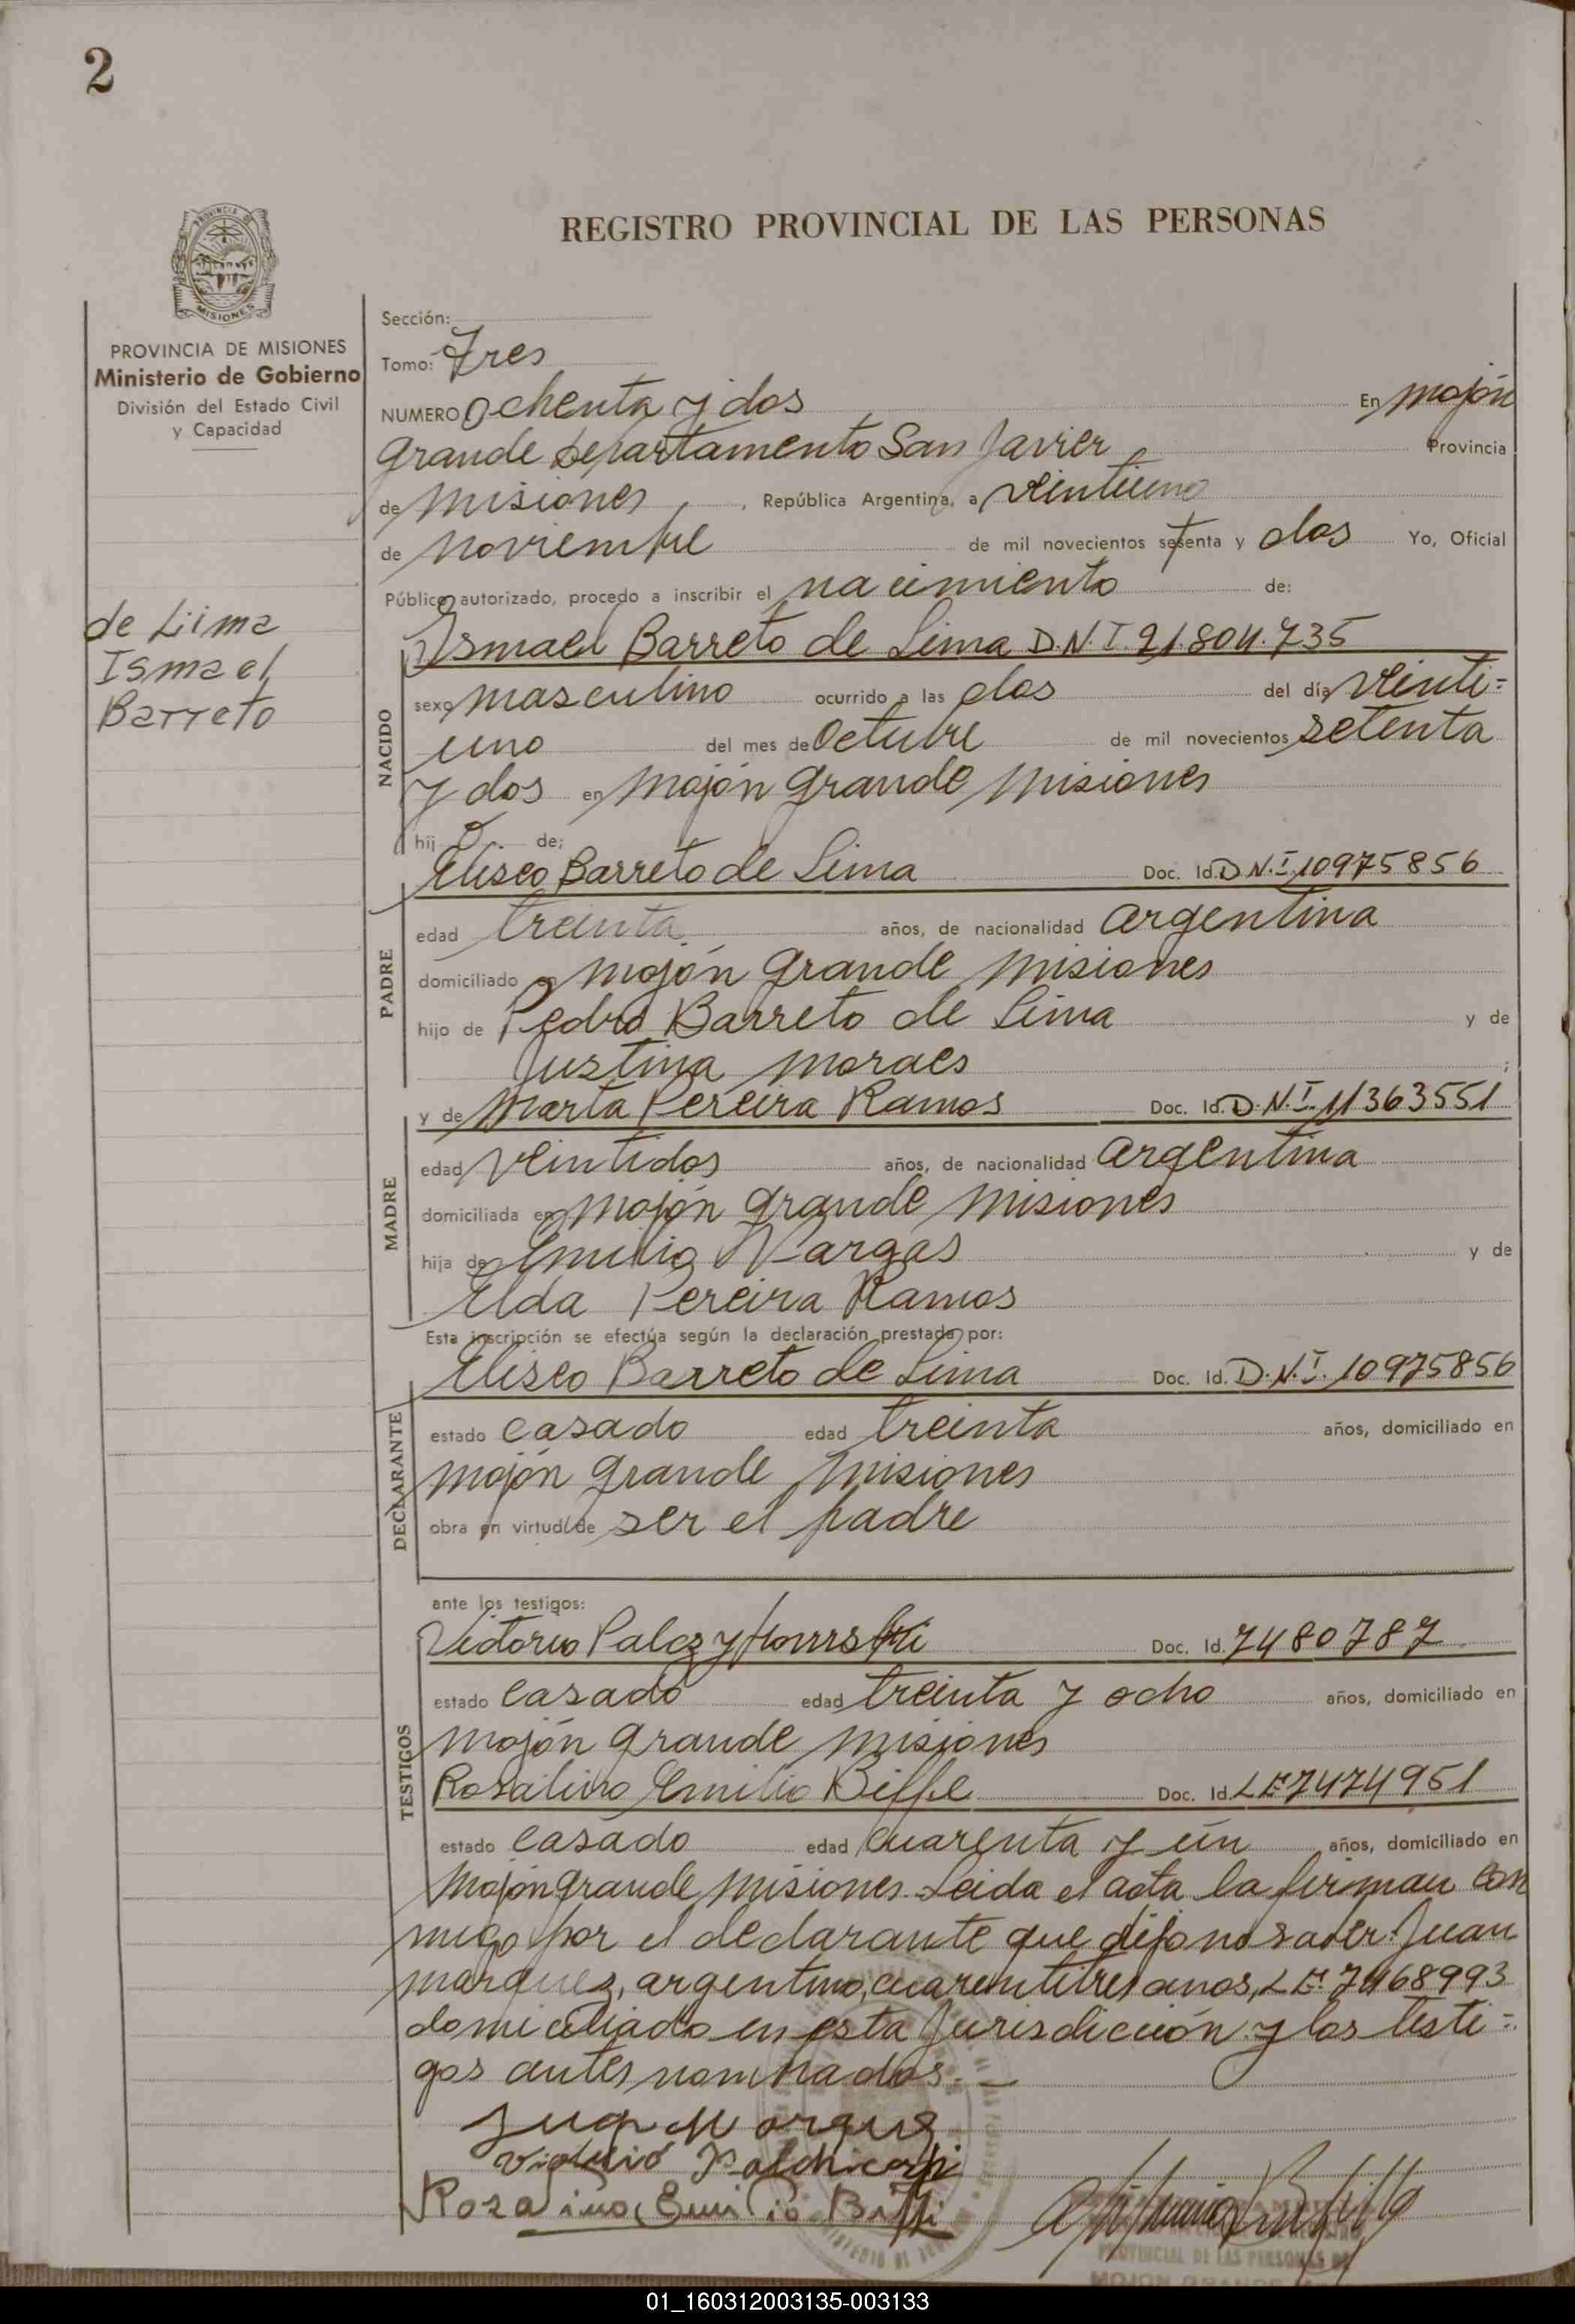 2
REGISTRO PROVINCIAL DE LAS PERSONAS
PROVINCIA DE
MISIONES
PROVINCIA DE MISIONES
Ministerio de Gobierno
División del Estado Civil
y Capacidad
de Lima
Ismael
Barreto
Sección:
Tomo: Tres
NUMERO Ochenta y dos En Mojón
Grande Departamento San Javier Provincia
de Misiones, República Argentina, a veintiuno
de Noviembre de mil novecientos setenta y dos Yo, Oficial
Público autorizado, procedo a inscribir el nacimiento de:
NACIDO
Ismael Barreto de Lima D.N.I. 21.804.735
sexo masculino ocurrido a las dos del día veinti=
uno del mes de Octubre de mil novecientos setenta
y dos en Mojón Grande Misiones
hij o de;
PADRE
Eliseo Barreto de Lima Doc. Id. D.N.I. 10975856
edad treinta años, de nacionalidad argentina
domiciliado en Mojón Grande Misiones
hijo de Pedro Barreto de Lima y de
Justina Moraes ;
MADRE
y de Marta Pereira Ramos Doc. Id. D.N.I. 11363551
edad veintidos años, de nacionalidad argentina
domiciliada en Mojón Grande Misiones
hija de Emilio Vargas y de
Elda Pereira Ramos
Esta inscripción se efectúa según la declaración prestada por:
DECLARANTE
Eliseo Barreto de Lima Doc. Id. D.N.I. 10975856
estado casado edad treinta años, domiciliado en
Mojón Grande Misiones
obra en virtud de ser el padre
ante los testigos:
TESTIGOS
Victorio Doc. Id. 7480787
estado casado edad treinta y ocho años, domiciliado en
Mojón Grande Misiones
Rosalino Emilio Doc. Id. LE 7474951
estado casado edad cuarenta y un años, domiciliado en
Mojón Grande Misiones. Leida el acta la firman con
migo por el declarante que dijo no saber: Juan
Marquez, argentino, cuarentitres anos, LE. 7468993
domiciliado en esta Jurisdicción y los testi=
gos antes nombrados.—
Juan Marquez
Rosalino Emilio
PROVINCIAL DE LAS PERSONAS
MOJON GRANDE
01_160312003135-003133